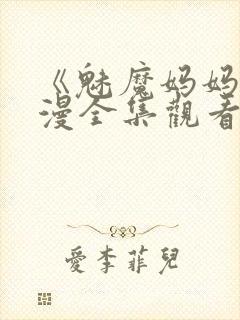 《魅魔妈妈
漫全集觀看
爱李菲兒